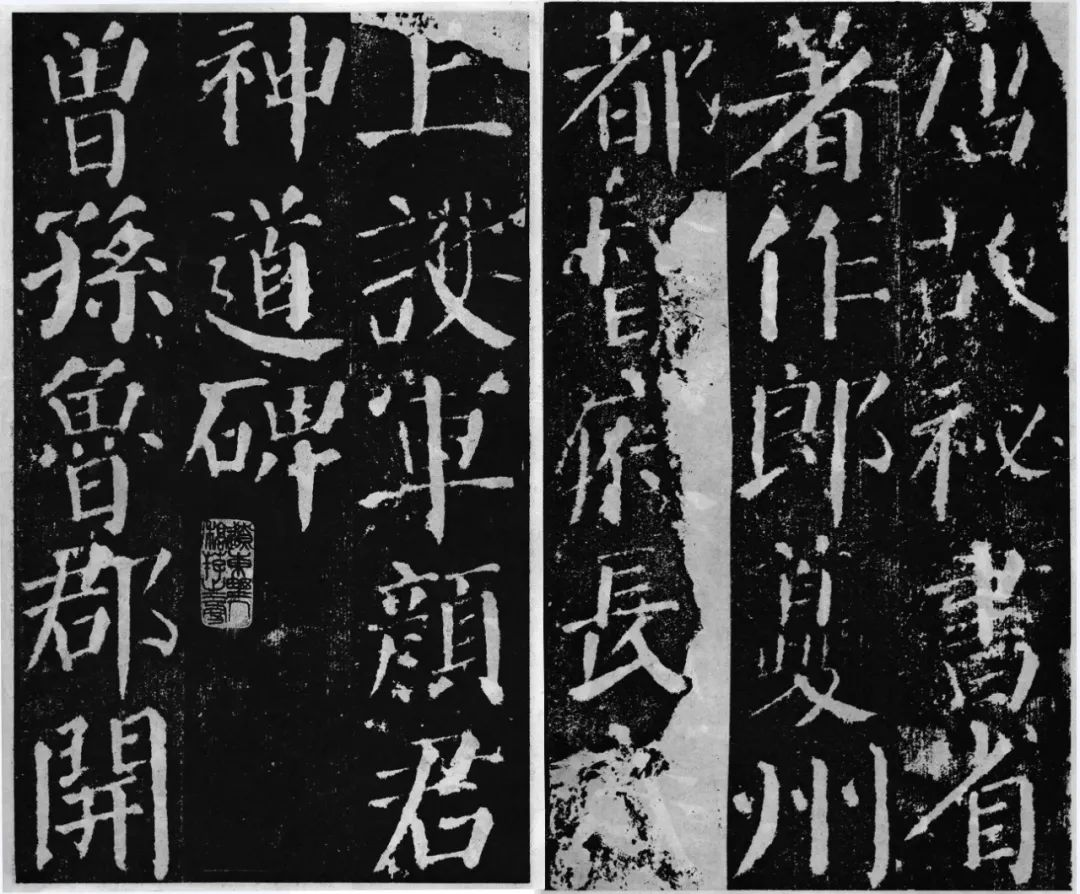 唐故祕書省
著作郎夔州
都督府長
上護軍顔君
神道碑
曾孫魯郡開